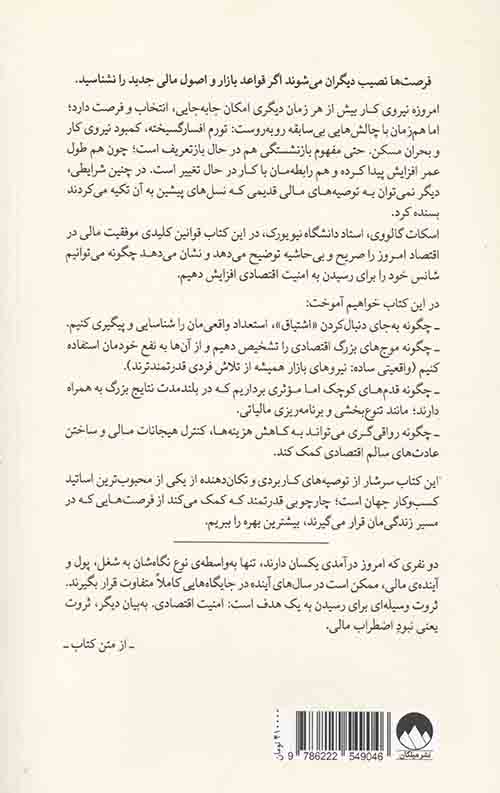 فرصت‌ها نصیب دیگران می‌شوند اگر قواعد بازار و اصول مالی جدید را نشناسید.
امروزه نیروی کار بیش از هر زمان دیگری امکان جابه‌جایی، انتخاب و فرصت دارد؛
اما هم‌زمان با چالش‌هایی بی‌سابقه روبه‌روست: تورم افسارگسیخته، کمبود نیروی کار
و بحران مسکن. حتی مفهوم بازنشستگی هم در حال بازتعریف است؛ چون هم طول
عمر افزایش پیدا کرده و هم رابطه‌مان با کار در حال تغییر است. در چنین شرایطی،
دیگر نمی‌توان به توصیه‌های مالی قدیمی که نسل‌های پیشین به آن تکیه می‌کردند
بسنده کرد.
اسکات گالووی، استاد دانشگاه نیویورک، در این کتاب قوانین کلیدی موفقیت مالی در
اقتصاد امروز را صریح و بی‌حاشیه توضیح می‌دهد و نشان می‌دهد چگونه می‌توانیم
شانس خود را برای رسیدن به امنیت اقتصادی افزایش دهیم.
در این کتاب خواهیم آموخت:
ـ چگونه به‌جای دنبال‌کردن «اشتیاق»، استعداد واقعی‌مان را شناسایی و پیگیری کنیم.
ـ چگونه موج‌های بزرگ اقتصادی را تشخیص دهیم و از آن‌ها به نفع خودمان استفاده
کنیم (واقعیتی ساده: نیروهای بازار همیشه از تلاش فردی قدرتمندترند).
ـ چگونه قدم‌های کوچک اما مؤثری برداریم که در بلندمدت نتایج بزرگ به همراه
دارند؛ مانند تنوع‌بخشی و برنامه‌ریزی مالیاتی.
ـ چگونه رواقی‌گری می‌تواند به کاهش هزینه‌ها، کنترل هیجانات مالی و ساختن
عادت‌های سالم اقتصادی کمک کند.
این کتاب سرشار از توصیه‌های کاربردی و تکان‌دهنده از یکی از محبوب‌ترین اساتید
کسب‌وکار جهان است؛ چارچوبی قدرتمند که کمک می‌کند از فرصت‌هایی که در
مسیر زندگی‌مان قرار می‌گیرند، بیشترین بهره را ببریم.
دو نفری که امروز درآمدی یکسان دارند، تنها به‌واسطه‌ی نوع نگاهشان به شغل، پول و
آینده‌ی مالی، ممکن است در سال‌های آینده در جایگاه‌هایی کاملاً متفاوت قرار بگیرند.
ثروت وسیله‌ای برای رسیدن به یک هدف است: امنیت اقتصادی. به‌بیان دیگر، ثروت
یعنی نبودِ اضطراب مالی.
ـ از متن کتاب ـ
۴۱۰۰۰۰ تومان
9 786222 549046
نشر میلکان